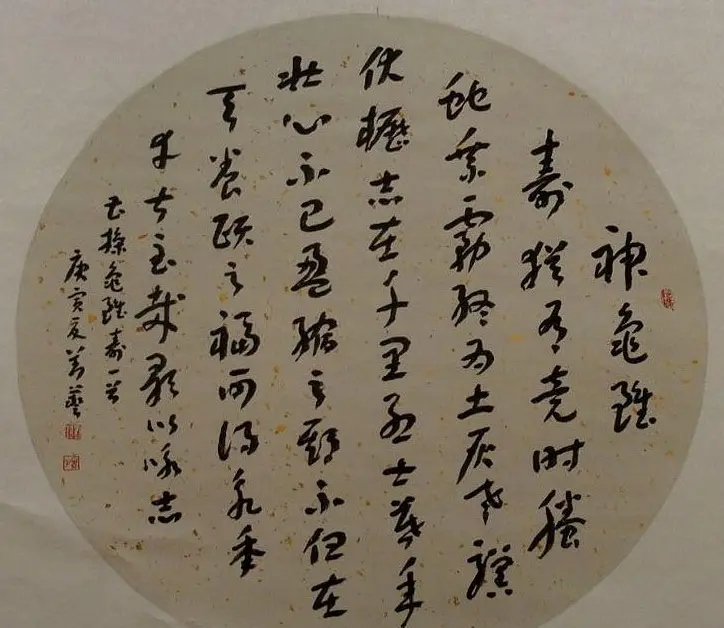 神龜雖
壽猶有竟时螣
蛇乘霧終为土灰老驥
伏櫪志在千里烈士暮年
壯心不已盈縮之期不但在
天養頤之福可得永年
幸甚至哉歌以咏志
操龜雖壽一首
庚寅夏